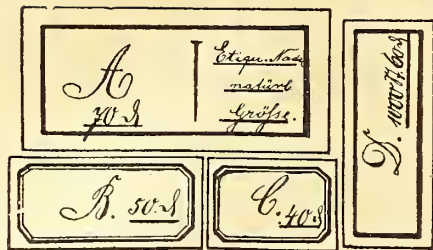 A
70 ₰
Etiqu.
natürl
Größe.
B. 50 ₰
C. 40 ₰
D. 1000 St. 60 ₰